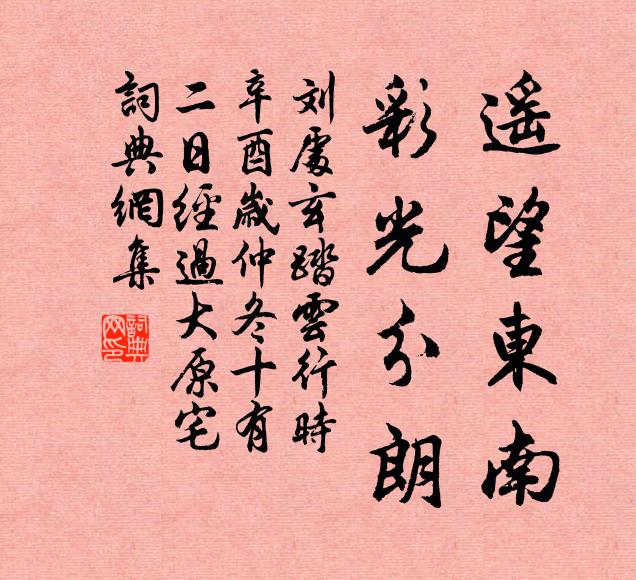 遥望東南
彩光分朗
刘處玄踏雲行時
辛酉歲仲冬十有
二日經過大原宅
詞典網集
詞典
网印